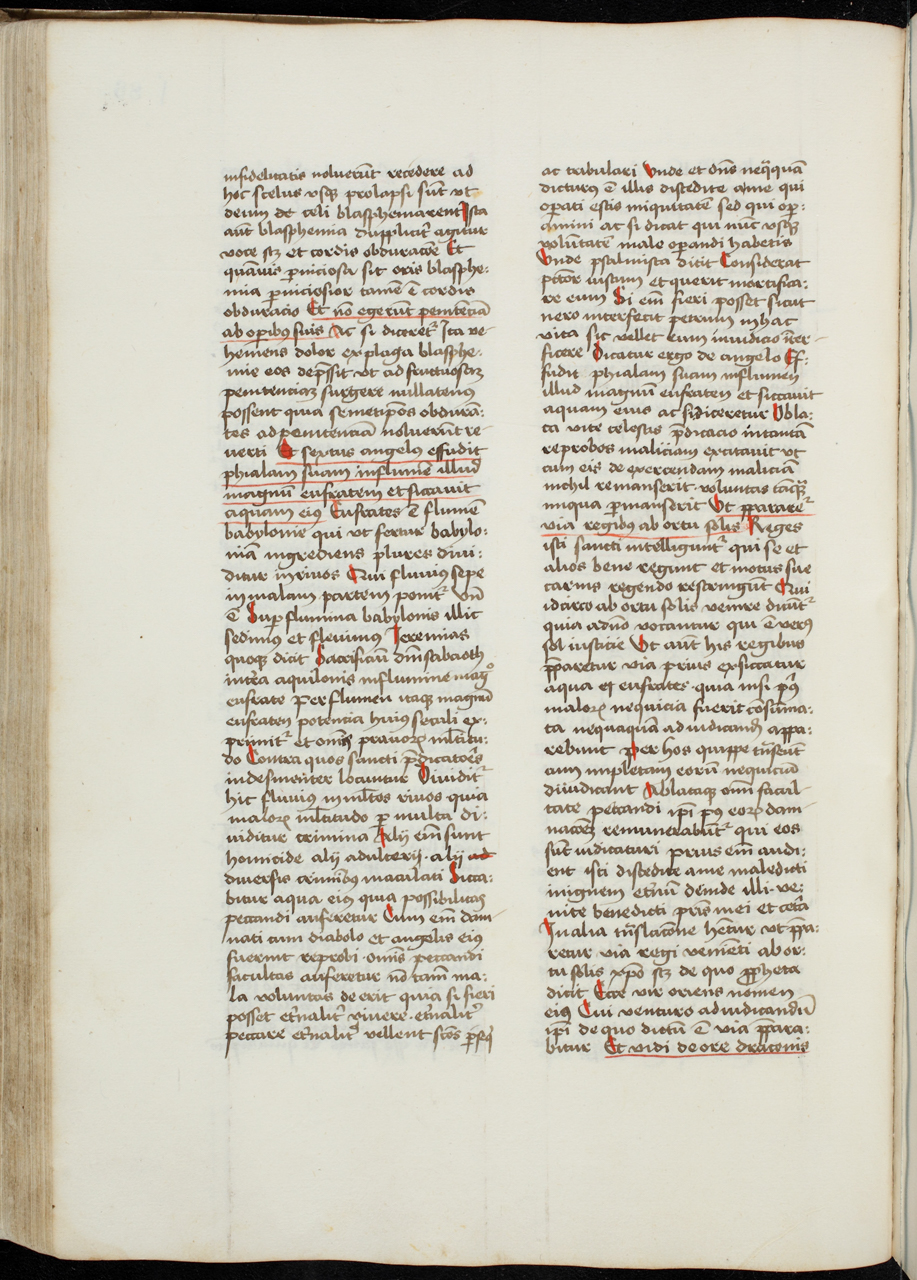 infidelitatis noluerūt recedere ad
hoc scelus vsqꝫ prolapsi sūt vt
deum de celi blasphemarent Ista
aūt blasphemia dupplicit᷑ agitur
voce scꝫ et cordis obduracōe Et
quāuis p̱niciosa sit oris blasphe⸗
mia p̱niciosior tamē ē cordis
obduracio Et nō egerūt penitēciā
ab op̱ibꝰ suis Ac si diceret᷑ Ita ve⸗
hemens dolor ex plaga blasphe⸗
mie eos dep̄ssit vt ad fructuosaꝫ
penitenciaꝫ surgere nullatenꝰ
possent quia semetip̄os obdurā⸗
tes ad penitenciā noluerūt re⸗
uerti Et sextus angelus effudit
phialam suam in flumē illud
magnū eufratem et siccauit
aquam eiꝰ Eufrates ē flumē
babylonie qui vt fertur babylo⸗
niā ingrediens plures diui⸗
ditur in riuos Qui fluuius sepe
in malam partem ponit᷑ vn̄
ē Sup̱ flumina babylonis illic
sedimꝰ et fleuimꝰ Jeremias
quoqꝫ dicit Sacrificiū dn̄i sabaoth
in terra aquilonis in flumine magͦ
eufrate Per flumen itaqꝫ magnū
eufraten potencia huiꝰ seculi ex⸗
primit᷑ et om̄is prauoꝝ ml̄titu⸗
do Contra quos sancti p̄dicatoēs
indesinēter locuntur Diuidit᷑
hic fluuiꝰ in ml̄tos riuos quia
maloꝝ ml̄titudo p̱ multa di⸗
uiditur crimina Alij em̄ sunt
homicide alij adulterij · alij ad
diuersis criminibꝰ maculati Sicca⸗
bitur aqua eiꝰ quia possibilitas
peccandi auferetur Cum em̄ dam⸗
nati cum diabolo et angelis eiꝰ
fuerint reprobi · om̄is peccandi
facultas auferetur nō tam̄ ma⸗
la voluntas deerit quia si fieri
posset et̄nalit᷑ viuere · et̄nalit᷑
peccare et̄nalit᷑ vellent sc̄os p̱seqͥ
ac tribulari Vnde et dn̄s neq̄quā
dicturꝰ ē illis discedite a me qui
op̱ati estis iniquitatē sed qui op̱⸗
amini ac si dicat qui nūc vsqꝫ
volūtatē male op̱andi habetis
Vnde psalmista dicit Considerat
pctōr iustum et querit mortifica⸗
re eum Si em̄ fieri posset sicut
nero interfecit petrum in hac
vita sic vellet eum in iudicio īter⸗
ficere Dicatur ergo de angelo Ef⸗
fudit phialam suam in flumen
illud magnū eufraten et siccauit
aquam eius ac si diceretur Abla⸗
ta vite celestis p̄dicacio in tantā
reprobos maliciam excitauit vt
cum eis de exercendam maliciā
nichil remanserit · voluntas tamq̄
iniqua p̱manserit Vt p̄parare᷑
via regibꝰ ab ortu solis Reges
isti sancti intelligunt᷑ qui se et
alios bene regunt et motus sue
carnis regendo restringūt Qui
idcirco ab ortu solis venire dicūt᷑
quia ad nō vocantur qui ē verꝰ
sol iusticie Vt aūt his regibus
p̄paretur via prius exsiccatur
aqua eꝰ eufrates · quia nisi pͥꝰ
maloꝝ nequicia fuerit cōsūma⸗
ta nequaquā ad iudicandū appa⸗
rebunt Per hos quippe tn̄seūt
cum impletam eorū nequiciā
diiudicant Ablataqꝫ om̄i facul⸗
tate peccandi ip̄i pͥꝰ eoꝝ dam⸗
nacōeꝫ remunerabūt᷑ qui eos
sūt iudicaturi prius em̄ audi⸗
ent isti discedite a me maledicti
in ignem et̄nū deinde illi · ve⸗
nite benedicti pr̄is mei et cet̄a
In alia tn̄slacōne hētur vt p̄pa⸗
retur via regi veniēti ab or⸗
tu solis xp̄o scꝫ de quo ꝓpheta
dicit Ecce vir oriens nomen
eiꝰ Cui venturo ad iudicandū
ip̄i de quo dictū ē via p̄para⸗
bitur Et vidi de ore draconis